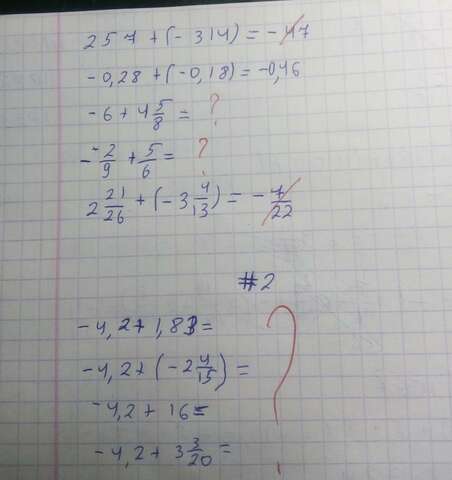 257 + (- 314) = - 47
-0,28 + (-0,18) = -0,46
-6 + 4 5/8 = ?
- 2/9 + 5/6 = ?
2 21/26 + (-3 4/13) = - 7/22
#2
-4,2 + 1,83 =
-4,2 + (-2 4/15) =
-4,2 + 16 =
-4,2 + 3 3/20 =
?